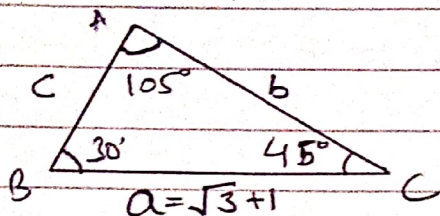 A
C 105° b
30' 45°
B a=√3+1 C